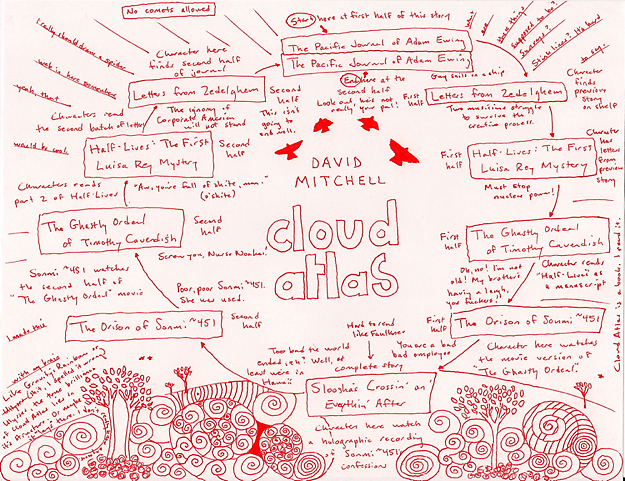 No comets allowed
Start here at first half of this story
The Pacific Journal of Adam Ewing
The Pacific Journal of Adam Ewing
End here at the
second half
Look out, he's not
really your pal!
Guy sails on a ship
what
are these things
supposed to be?
Sunrays?
Stink lines? It's hard
to say.
I really should draw a spider
web in here somewhere
yeah, that
would be cool
Character here
finds second half
of journal
Letters from Zedelghem
Second
half
This isn't
going to
end well.
First
half
Letters from Zedelghem
Character
finds
previous
story
on shelf
Two musicians struggle
to survive the
creative process.
Characters read
the second batch of letters
The ignomy of
Corporate American
will not stand
Half-Lives: The First
Luisa Rey Mystery
Second
half
First
half
Half-Lives: The First
Luisa Rey Mystery
Character
has
letters
from
previous
story
Must stop
nuclear power!
DAVID
MITCHELL
cloud
atlas
Characters reads
part 2 of Half-Lives
"Aw, you're full of shite, mm."
(o'shite)
The Ghastly Ordeal
of Timothy Cavendish
Second
half
Screw you, Nurse Noakes!
First
half
The Ghastly Ordeal
of Timothy Cavendish
Oh, no! I'm not
old! My brother's
having a laugh,
you fuckers!
Character reads
"Half-Lives" as
a manuscript
Sonmi ~451 watches
the second half of
"The Ghastly Ordeal" movie
Poor, poor Sonmi ~451.
She was used.
The Orison of Sonmi ~451
Second
half
First
half
The Orison of Sonmi ~451
You are a bad
bad employee
Character here watches
the movie version of
"The Ghastly Ordeal."
Hard to read
like Faulkner
Too bad the world
ended, eh? Well, at
least we're in
Hawaii
complete story
Sloosha's Crossin' an'
Everythin' After
Character here watch
a holographic recording
of Sonmi ~451's
confession
Cloud Atlas is a book. I read it.
I made this
with my brain
Like Gravity's Rainbow or
of Cloud Atlas lies in